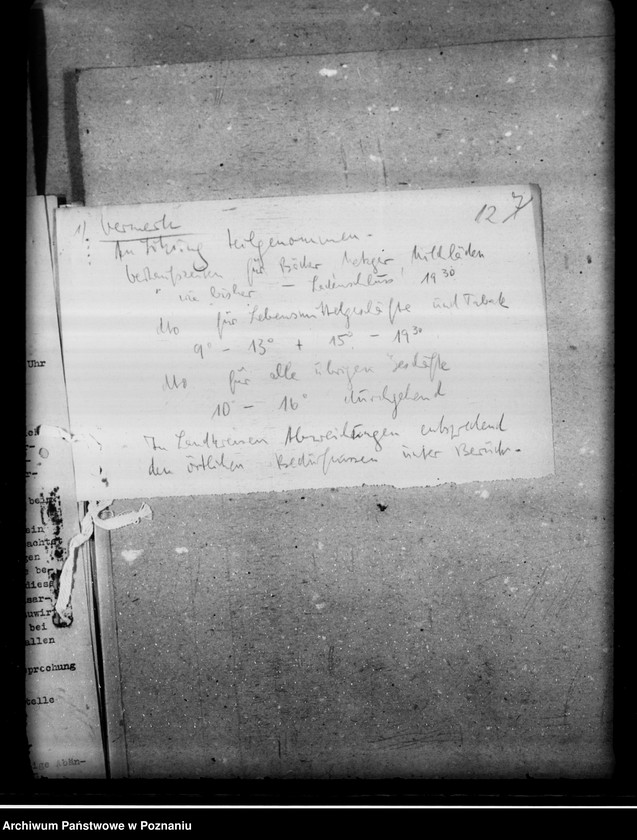 12 7
1) Vermerk
An Sitzung teilgenommen.
Verkaufszeiten für Bäcker, Metzger, Milchläden
" wie bisher – Ladenschluss 19 30
für Lebensmittelgeschäfte und Tabak
9° – 13° + 15° – 19 30
für alle übrigen Geschäfte
10 – 16° durchgehend
In Landkreisen Abweichungen entsprechend
den örtlichen Bedürfnissen unter
Uhr
bei
ein
acht
gen
be-
dies
mar-
bei
allen
prechung
telle
Archiwum Państwowe w Poznaniu